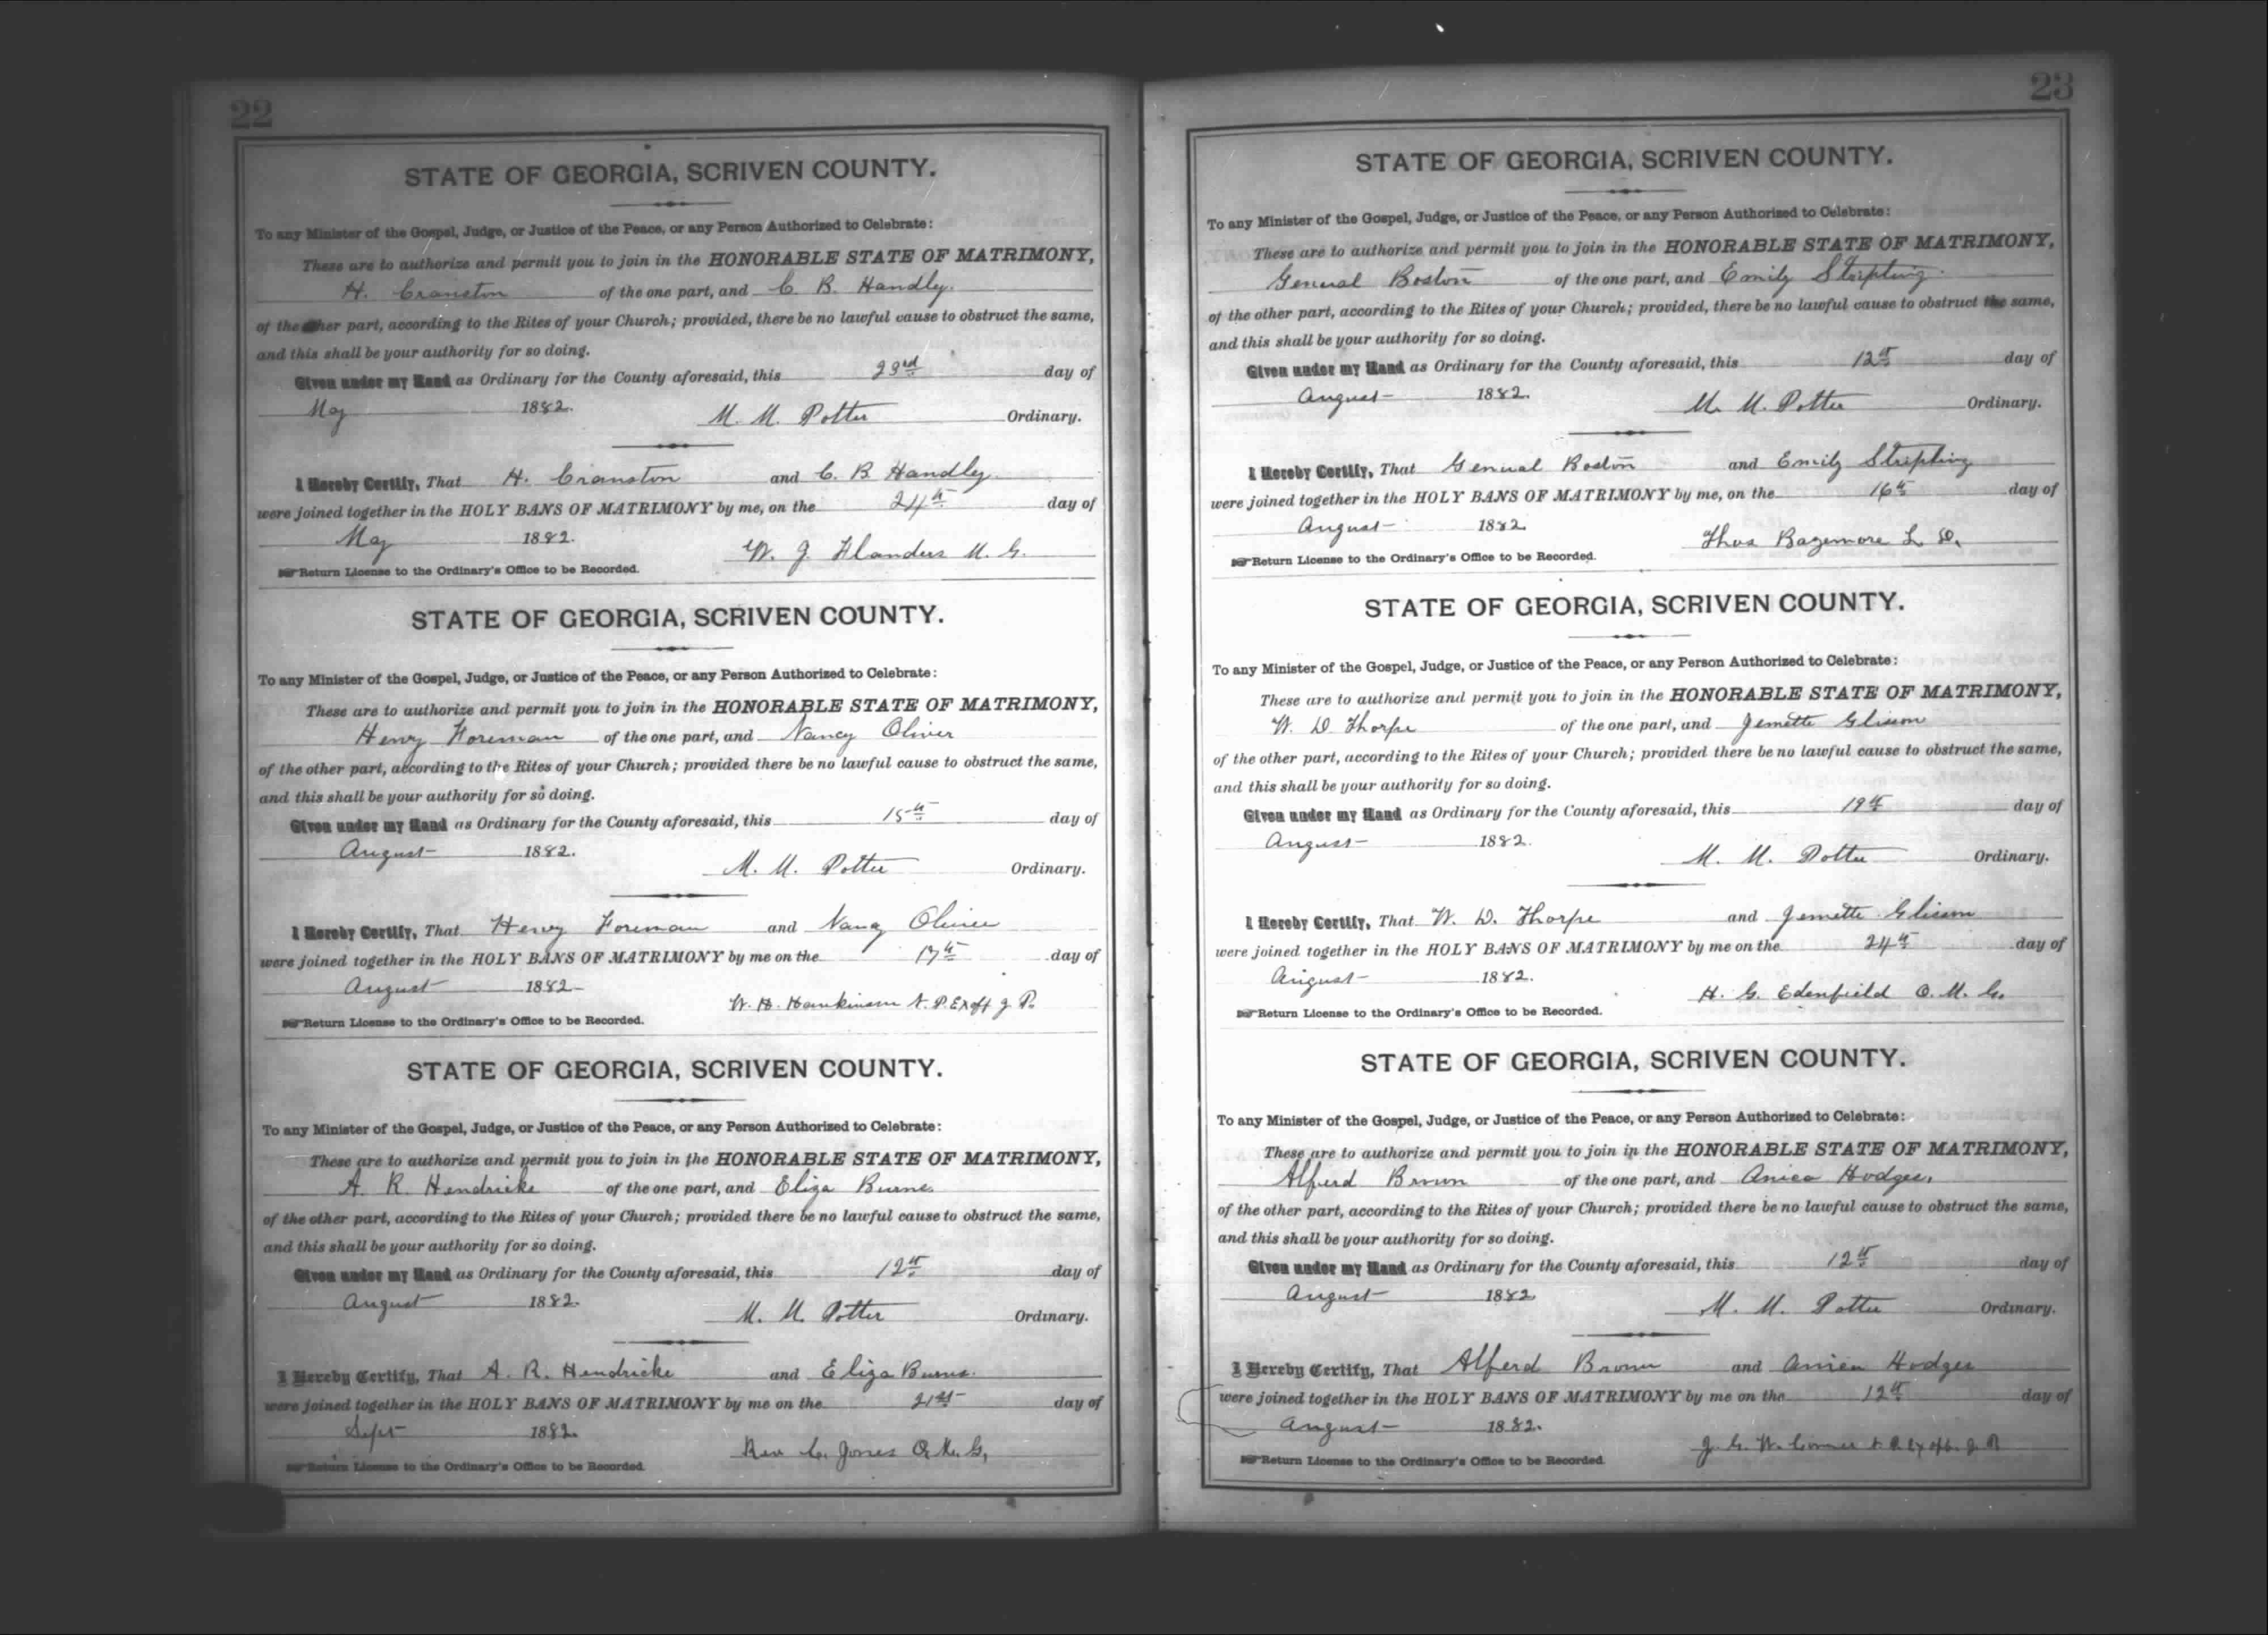 22
STATE OF GEORGIA, SCRIVEN COUNTY.
To any Minister of the Gospel, Judge, or Justice of the Peace, or any Person Authorized to Celebrate:
These are to authorize and permit you to join in the HONORABLE STATE OF MATRIMONY,
H. Cranston of the one part, and C. B. Handly.
of the other part, according to the Rites of your Church; provided, there be no lawful cause to obstruct the same,
and this shall be your authority for so doing.
Given under my Hand as Ordinary for the County aforesaid, this 23rd day of
May 1882. M. M. Potter Ordinary.
I Hereby Certify, That H. Cranston and C. B. Handly
were joined together in the HOLY BANS OF MATRIMONY by me, on the 24th day of
May 1882. W. J. Flanders M. G.
Return License to the Ordinary's Office to be Recorded.
STATE OF GEORGIA, SCRIVEN COUNTY.
To any Minister of the Gospel, Judge, or Justice of the Peace, or any Person Authorized to Celebrate:
These are to authorize and permit you to join in the HONORABLE STATE OF MATRIMONY,
Henry Foreman of the one part, and Nancy Oliver
of the other part, according to the Rites of your Church; provided there be no lawful cause to obstruct the same,
and this shall be your authority for so doing.
Given under my Hand as Ordinary for the County aforesaid, this 15th day of
August 1882. M. M. Potter Ordinary.
I Hereby Certify, That Henry Foreman and Nancy Oliver
were joined together in the HOLY BANS OF MATRIMONY by me on the 17th day of
August 1882 W. H. Hankinson N. P. Exoff J. P.
Return License to the Ordinary's Office to be Recorded.
STATE OF GEORGIA, SCRIVEN COUNTY.
To any Minister of the Gospel, Judge, or Justice of the Peace, or any Person Authorized to Celebrate:
These are to authorize and permit you to join in the HONORABLE STATE OF MATRIMONY,
A. R. Hendricks of the one part, and Eliza Burns
of the other part, according to the Rites of your Church; provided there be no lawful cause to obstruct the same,
and this shall be your authority for so doing.
Given under my Hand as Ordinary for the County aforesaid, this 12th day of
August 1882. M. M. Potter Ordinary.
I Hereby Certify, That A. R. Hendricks and Eliza Burns.
were joined together in the HOLY BANS OF MATRIMONY by me on the 21st day of
Sept 1882. Rev C. Jones O. M. G.
Return License to the Ordinary's Office to be Recorded.
23
STATE OF GEORGIA, SCRIVEN COUNTY.
To any Minister of the Gospel, Judge, or Justice of the Peace, or any Person Authorized to Celebrate:
These are to authorize and permit you to join in the HONORABLE STATE OF MATRIMONY,
General Boston of the one part, and Emily Stripling.
of the other part, according to the Rites of your Church; provided, there be no lawful cause to obstruct the same,
and this shall be your authority for so doing.
Given under my Hand as Ordinary for the County aforesaid, this 12th day of
August 1882. M. M. Potter Ordinary.
I Hereby Certify, That General Boston and Emily Stripling
were joined together in the HOLY BANS OF MATRIMONY by me, on the 16th day of
August 1882 Thos Bazemore L. D.
Return License to the Ordinary's Office to be Recorded.
STATE OF GEORGIA, SCRIVEN COUNTY.
To any Minister of the Gospel, Judge, or Justice of the Peace, or any Person Authorized to Celebrate:
These are to authorize and permit you to join in the HONORABLE STATE OF MATRIMONY,
W. D. Thorpe of the one part, and Jemette Glisson
of the other part, according to the Rites of your Church; provided there be no lawful cause to obstruct the same,
and this shall be your authority for so doing.
Given under my Hand as Ordinary for the County aforesaid, this 19th day of
August 1882. M. M. Potter Ordinary.
I Hereby Certify, That W. D. Thorpe and Jemette Glisson
were joined together in the HOLY BANS OF MATRIMONY by me on the 24th day of
August 1882. H. G. Edenfield O. M. G.
Return License to the Ordinary's Office to be Recorded.
STATE OF GEORGIA, SCRIVEN COUNTY.
To any Minister of the Gospel, Judge, or Justice of the Peace, or any Person Authorized to Celebrate:
These are to authorize and permit you to join in the HONORABLE STATE OF MATRIMONY,
Alferd Brown of the one part, and Anica Hodges,
of the other part, according to the Rites of your Church; provided there be no lawful cause to obstruct the same,
and this shall be your authority for so doing.
Given under my Hand as Ordinary for the County aforesaid, this 12th day of
August 1882 M. M. Potter Ordinary.
I Hereby Certify, That Alferd Brown and Anica Hodges
were joined together in the HOLY BANS OF MATRIMONY by me on the 12th day of
August 1882. J. G. W. Conner N. P. Ex off. J. P.
Return License to the Ordinary's Office to be Recorded